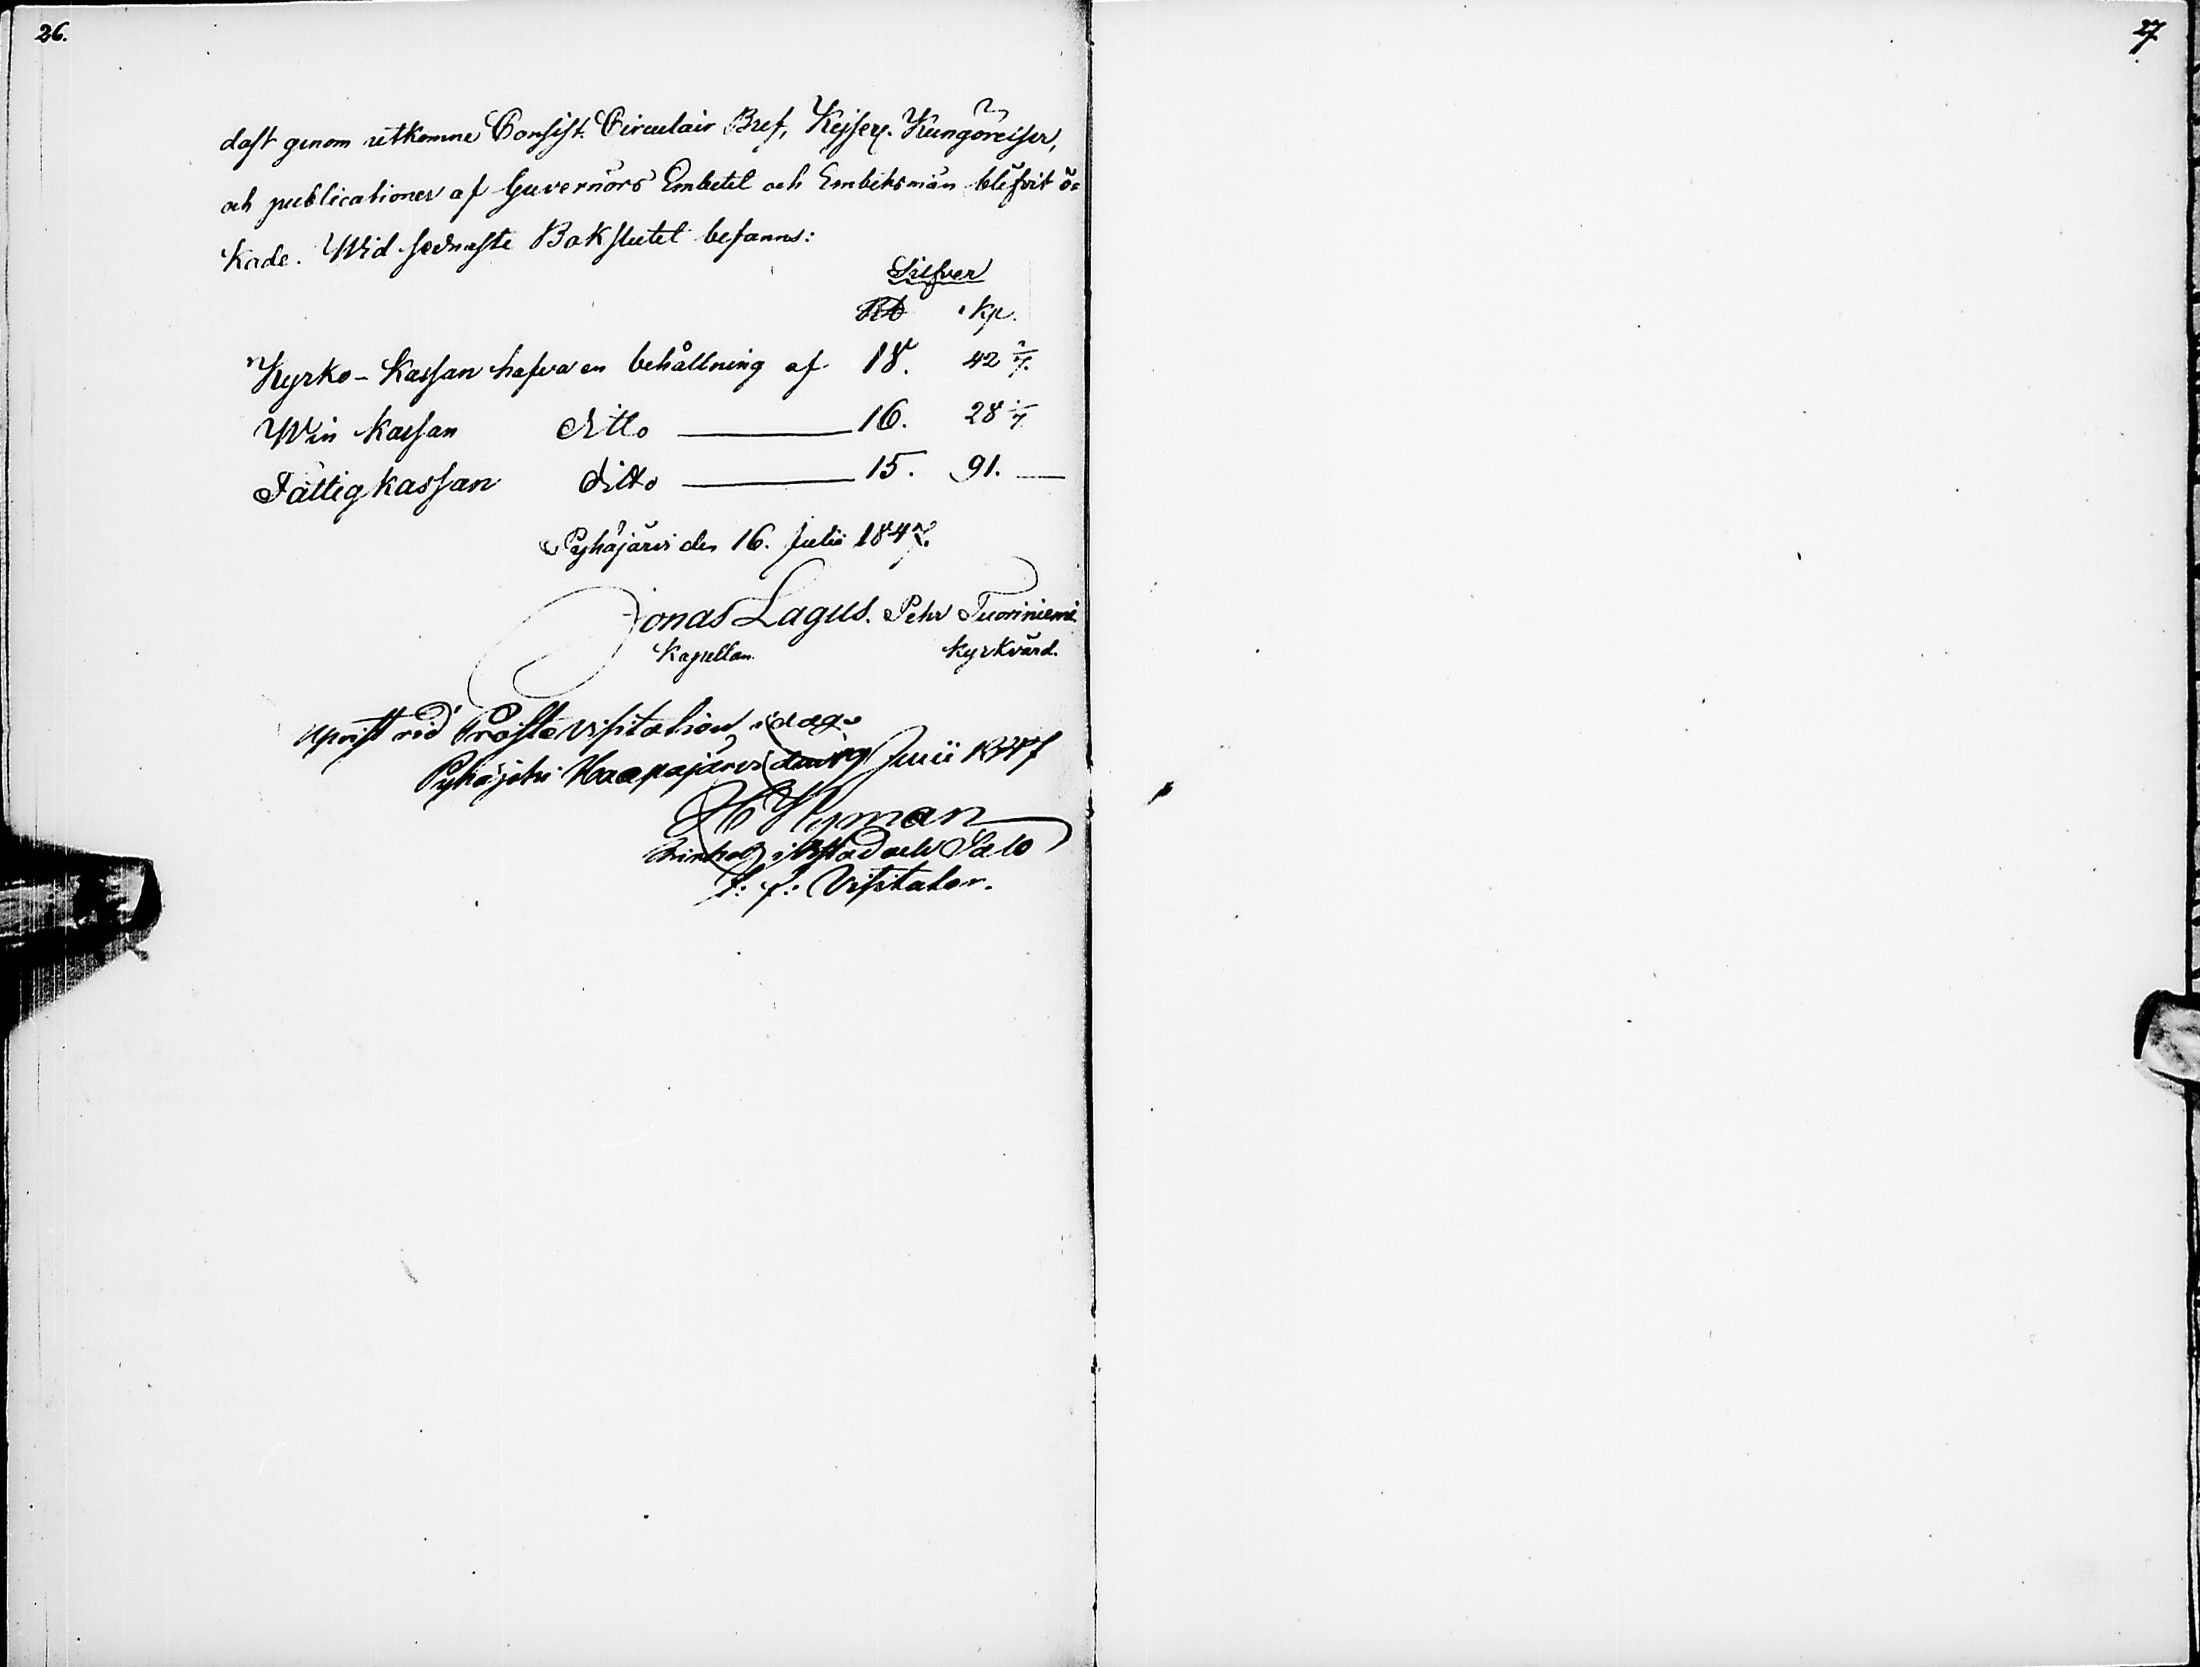 26.
27
dast genom utkomne Consist. Circulair Bref, Kejserl. Kungörelser,
och publicationer af Guvernörs Embetet och Embetsmän blifvit ö=
kade. Wid sednaste Bokslutet befanns:
Silfver
Rb Kp.
Kyrko-Kassan hafva en behållning af 18. 42 2/7.
Win kassan ditto 16. 28 1/7
Fattigkassan ditto 15. 91. —
Pyhäjärvi den 16. Julii 1847.
Jonas Lagus. Pehr Tuoriniemi
Kapellan. Kyrkvärd.
Upvist vid Prosta visitation i dag.
Pyhäjoki Haapajärvi den 19 Junii 1847
H Heman
i Bstad och Salo
t: f: Visitator.